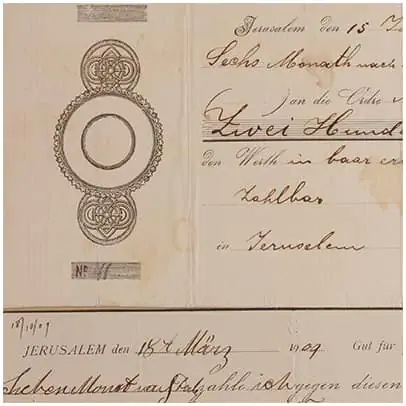 Jerusalem den 15
Sechs Monath nach
( ) an die Ordre
Zwei Hund
den Werth in baar er
Zahlbar
in Jerusalem
No. 11
18/10/09
JERUSALEM den 18t März 1909 Gut für
Sieben Monat gegen diesen